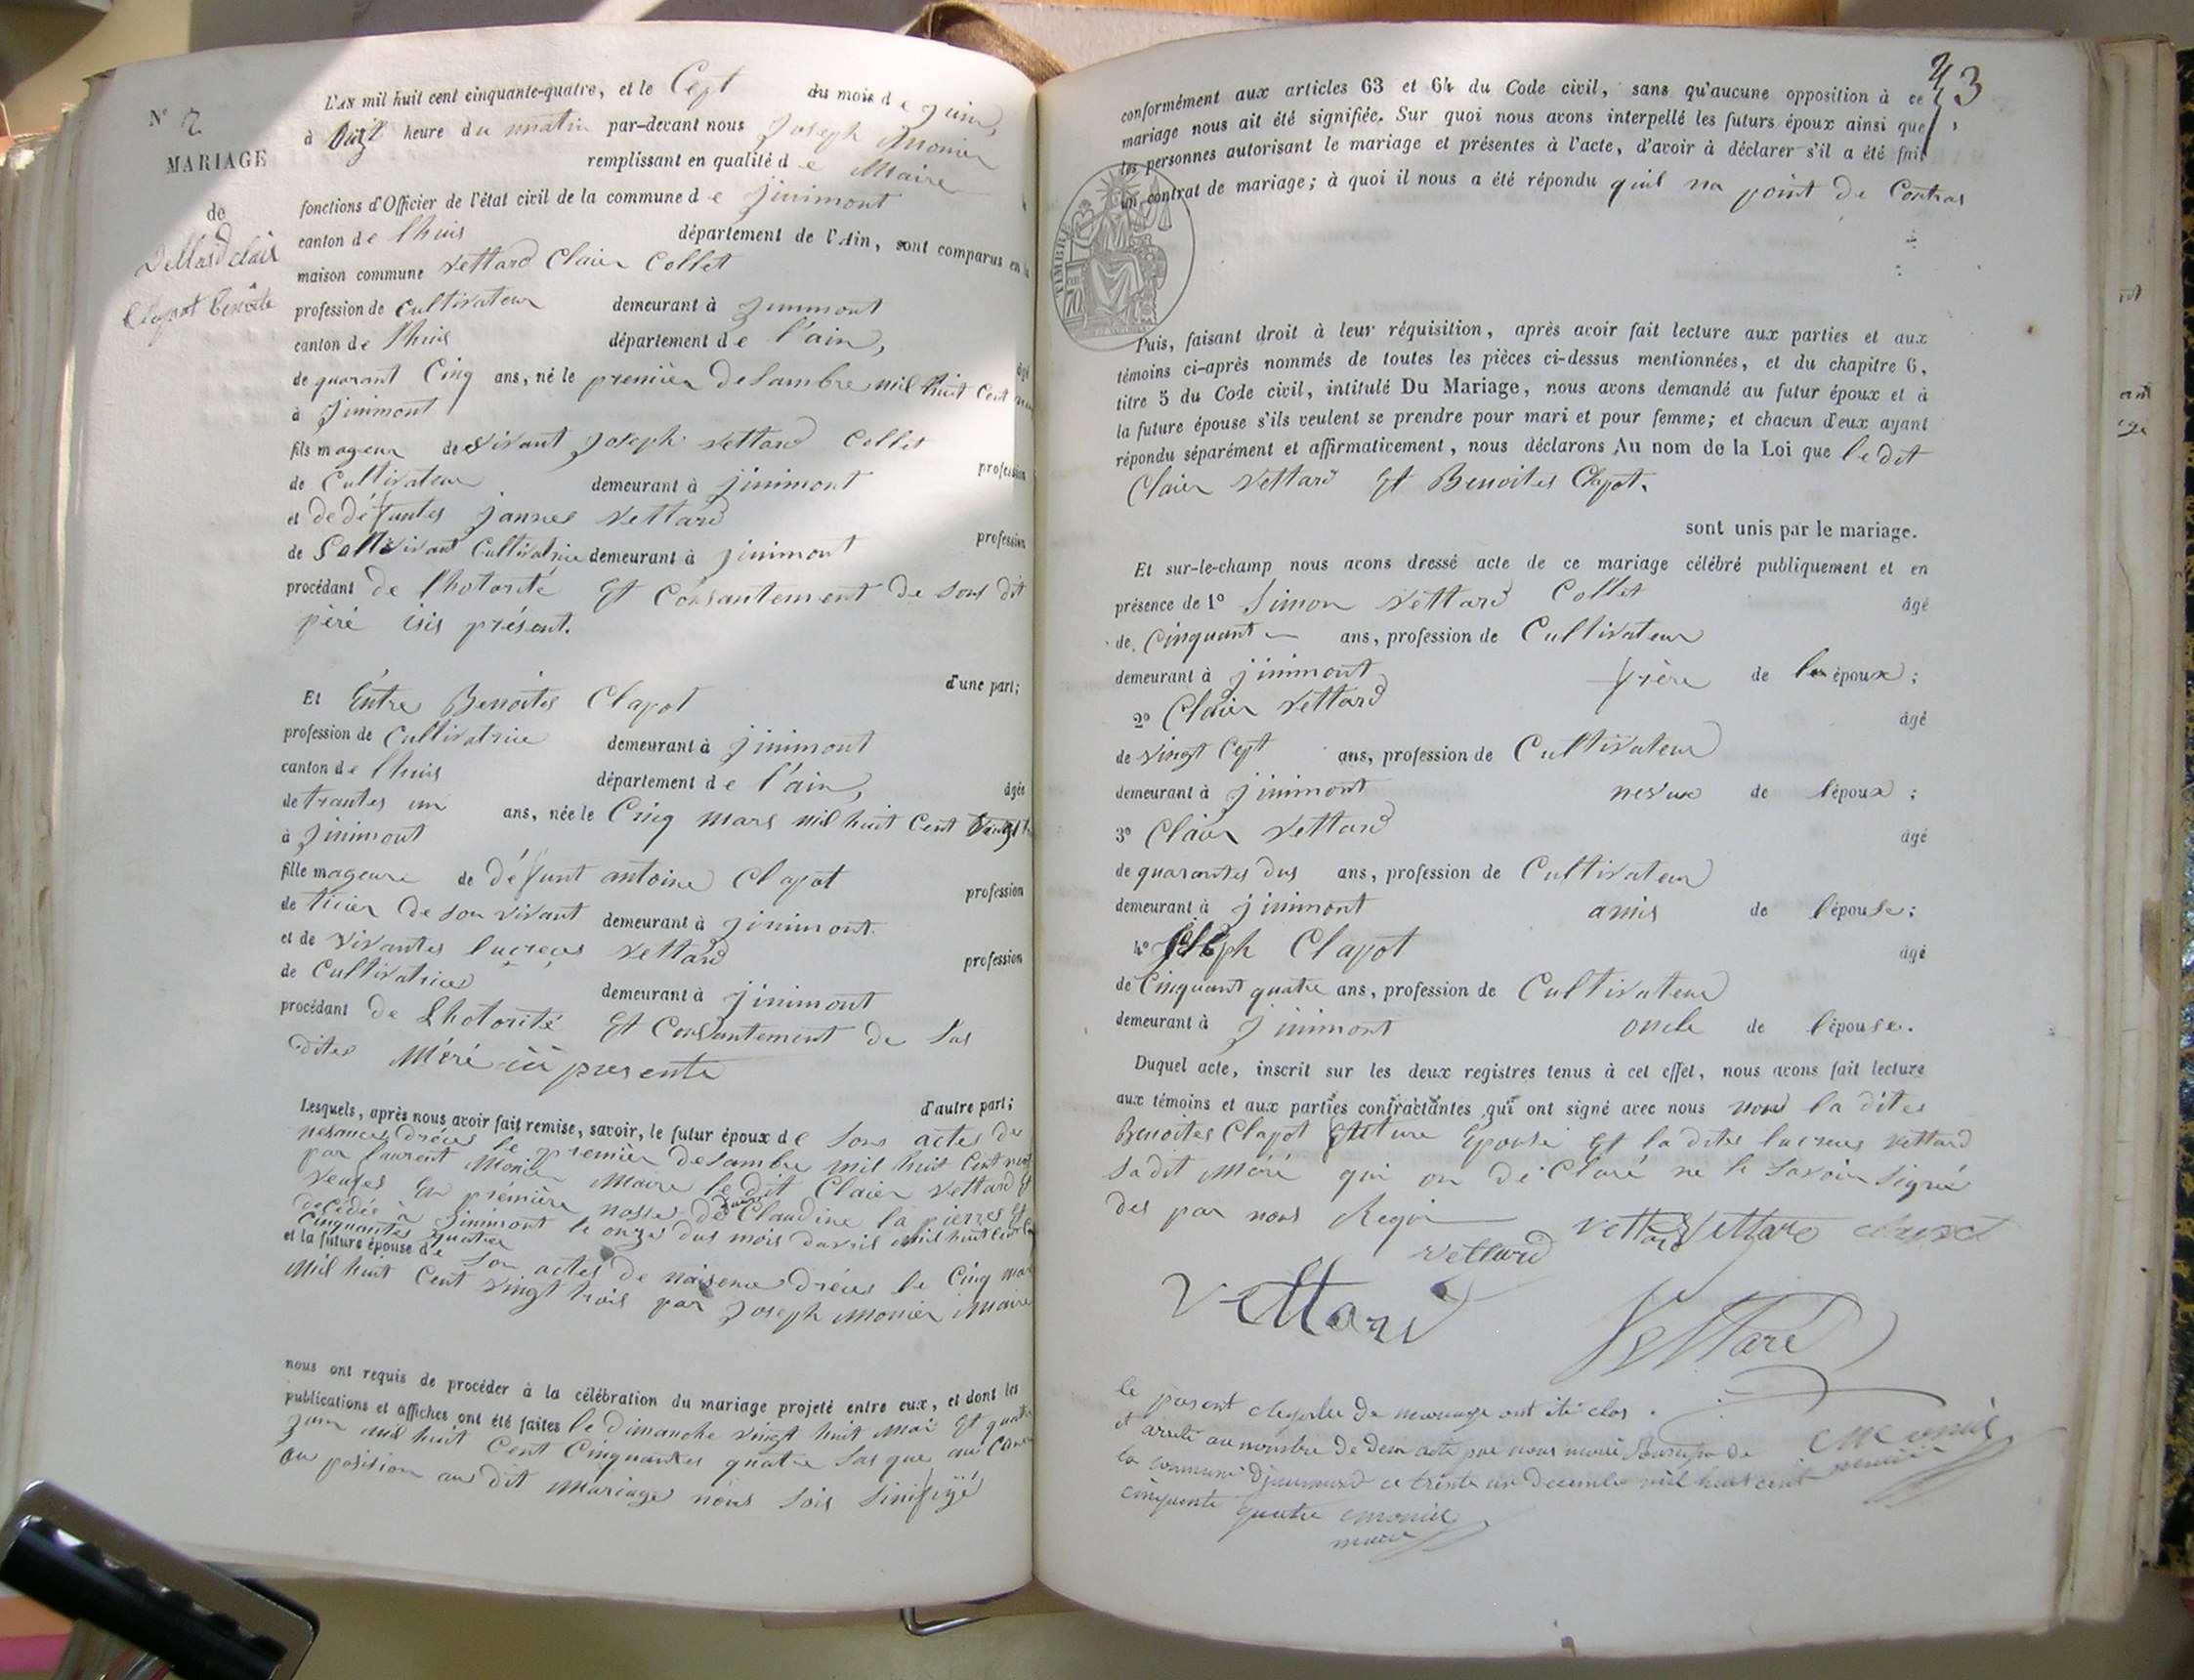 N° 2
MARIAGE
de
Vettard Clair
Clapot Benoite
L'AN mil huit cent cinquante-quatre, et le Cept du mois de juin,
à heure du matin par-devant nous Joseph Monier
remplissant en qualité de Maire
fonctions d'Officier de l'état civil de la commune de jinimont
canton de lhuis département de l'Ain, sont comparus en la
maison commune Vettard Claier Collet
profession de Cultivateur demeurant à jinimont
canton de lhuis département de l'ain, âgé
de quarant Cinq ans, né le premier desambre mil huit Cent
à jinimont
fils mageur de vivant Joseph Vettard Collet profession
de Cultivateur demeurant à jinimont
et de défuntes jannes Vettard profession
de Cultivatrice demeurant à jinimont
procédant de lhotorité Et Consantement de sont dit
péré isis présent.
d'une part;
Et Entre Benoites Clapot
profession de Cultivatrice demeurant à jinimont
canton de lhuis département de l'ain, âgée
de trantes un ans, née le Cinq mars mil huit Cent vingt
à jinimont
fille mageure de défunt antoine Clapot profession
de ticier de son vivant demeurant à jinimont.
et de vivantes lucreces Vettard profession
de Cultivatrices demeurant à jinimont
procédant de Lhotorité Et Consantement de Sas
dites Méré ici presente
d'autre part;
Lesquels, après nous avoir fait remise, savoir, le futur époux de Sons actes de
nesances drécés le premier desambre mil huit Cent neuf
par laurent Monier Maire le dit Claier Vettard Et
veufes En prémière nosse de Claudine la pierres Et
décédée à jinimont le onzes dus mois davril mil huit Cent
Cinquantes quatre
et la future épouse de Son actes de naisence drécés le Cinq mars
Mil huit Cent vingt trois par Joseph Monier Maire
nous ont requis de procéder à la célébration du mariage projeté entre eux, et dont les
publications et affiches ont été faites le dimanche vingt huit Mai Et quatre
juin mil huit Cent Cinquantes quatre Sas que au Cune
ou position au dit Mariage nous Sois Sinifiyé
23
conformément aux articles 63 et 64 du Code civil, sans qu'aucune opposition à ce
mariage nous ait été signifiée. Sur quoi nous avons interpellé les futurs époux ainsi que
les personnes autorisant le mariage et présentes à l'acte, d'avoir à déclarer s'il a été fait
un contrat de mariage; à quoi il nous a été répondu quil na point de Contras
TIMBRE
Puis, faisant droit à leur réquisition, après avoir fait lecture aux parties et aux
témoins ci-après nommés de toutes les pièces ci-dessus mentionnées, et du chapitre 6,
titre 5 du Code civil, intitulé Du Mariage, nous avons demandé au futur époux et à
la future épouse s'ils veulent se prendre pour mari et pour femme; et chacun d'eux ayant
répondu séparément et affirmativement, nous déclarons Au nom de la Loi que le dit
Claier Vettard Et Benoites Clapot.
sont unis par le mariage.
Et sur-le-champ nous avons dressé acte de ce mariage célébré publiquement et en
présence de 1° Simon Vettard Collet âgé
de Cinquant ans, profession de Cultivateur
demeurant à jinimont frère de l'époux;
2° Claier Vettard âgé
de vingt Cept ans, profession de Cultivateur
demeurant à jinimont neveux de l'époux;
3° Claier Vettard âgé
de quarantes dus ans, profession de Cultivateur
demeurant à jinimont amis de l'épouse;
4° Joseph Clapot âgé
de Cinquant quatre ans, profession de Cultivateur
demeurant à jinimont oncle de l'épouse.
Duquel acte, inscrit sur les deux registres tenus à cet effet, nous avons fait lecture
aux témoins et aux parties contractantes qui ont signé avec nous nous la dites
Benoites Clapot Epouse Et la dites lucreces Vettard
Sadit Méré qui on dé Claré ne le Savoir Signié
des par nous Requi
Vettard Vettard
Vettard
Vettard Vettard
le present de mariage ont été clos
et arreté au nombre de deux acte par nous maire de
la commune ce trente un decembre mil huit cent
cinquante quatre Monier
maire
Monier